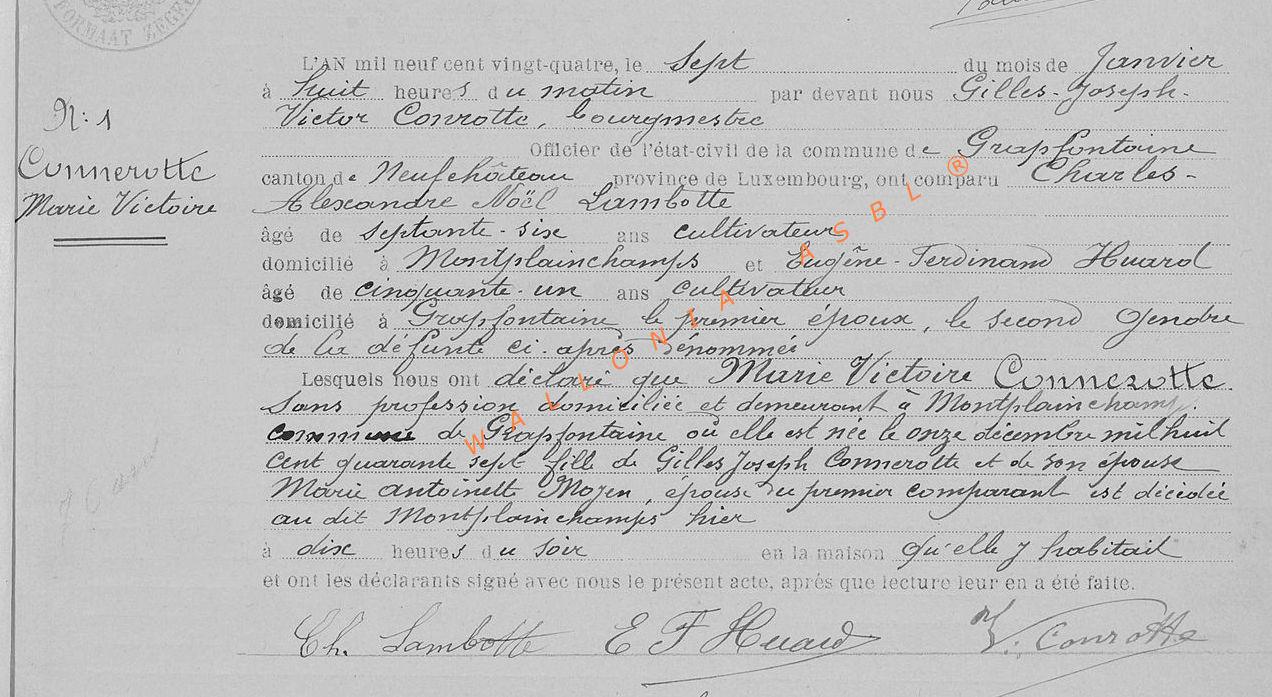 FORMAAT ZEGEL
L'AN mil neuf cent vingt-quatre, le Sept du mois de Janvier
à huit heures du matin par devant nous Gilles-Joseph-
Victor Conrotte, bourgmestre
Officier de l'état-civil de la commune de Grapfontaine
N: 1
Connerotte
Marie Victoire
canton de Neufchâteau province de Luxembourg, ont comparu Charles-
Alexandre Noël Lambotte
âgé de septante-six ans cultivateur
domicilié à Montplainchamps et Eugène-Ferdinand Huard
âgé de cinquante-un ans cultivateur
domicilié à Grapfontaine le premier époux, le second gendre
de la défunte ci-après dénommée
Lesquels nous ont déclaré que Marie Victoire Connerotte
Sans profession domiciliée et demeurant à Montplainchamps.
commune de Grapfontaine où elle est née le onze décembre mil huit
cent quarante sept fille de Gilles Joseph Connerotte et de son épouse
Marie antoinette Mozen, épouse du premier comparant est décédée
au dit Montplainchamps hier
à dix heures du soir en la maison qu'elle y habitait
et ont les déclarants signé avec nous le présent acte, après que lecture leur en a été faite.
Ch. Lambotte E F Huard V. Conrotte
WALLONIA ASBL ®